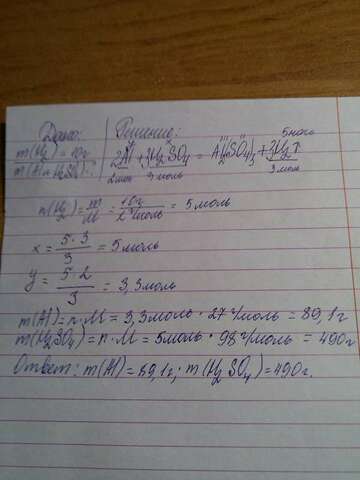 Дано: Решение:
5 моль
m(H₂) = 10г 2Al + 3H₂SO₄ = Al₂(SO₄)₃ + 3H₂↑
m(Al и H₂SO₄)-? 2 моль 3 моль 3 моль
n(H₂) = m/M = 10г/2г/моль = 5 моль
x = 5·3/3 = 5 моль
y = 5·2/3 = 3,3 моль
m(Al) = n·M = 3,3 моль · 27 г/моль = 89,1 г
m(H₂SO₄) = n·M = 5 моль · 98 г/моль = 490 г
Ответ: m(Al) = 89,1 г; m(H₂SO₄) = 490 г.